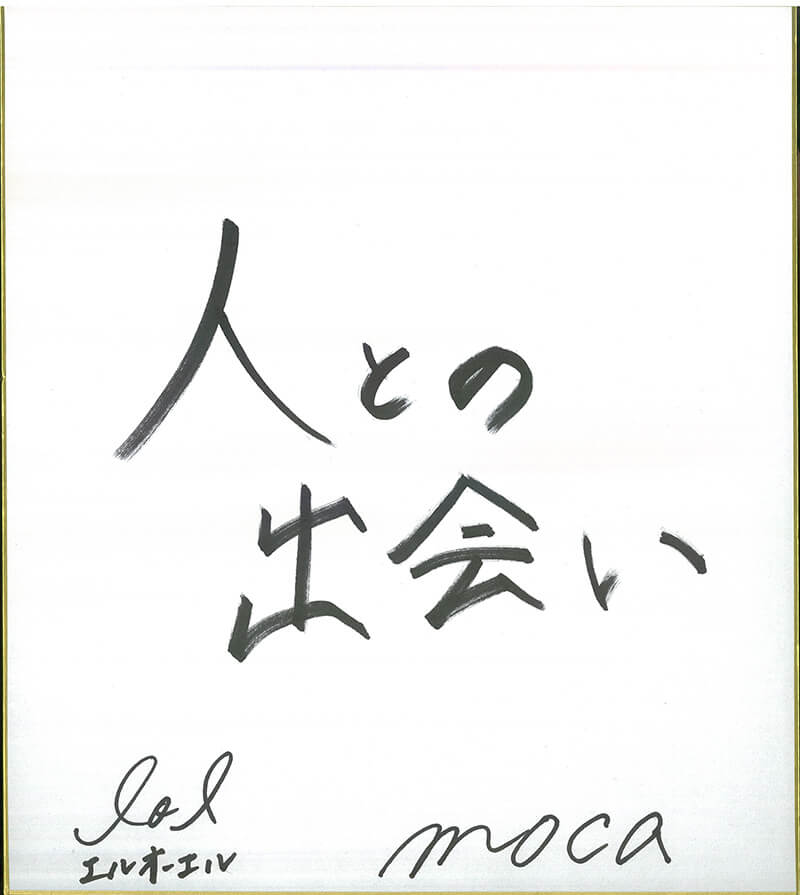 人との
出会い
lol
エルオーエル
moca